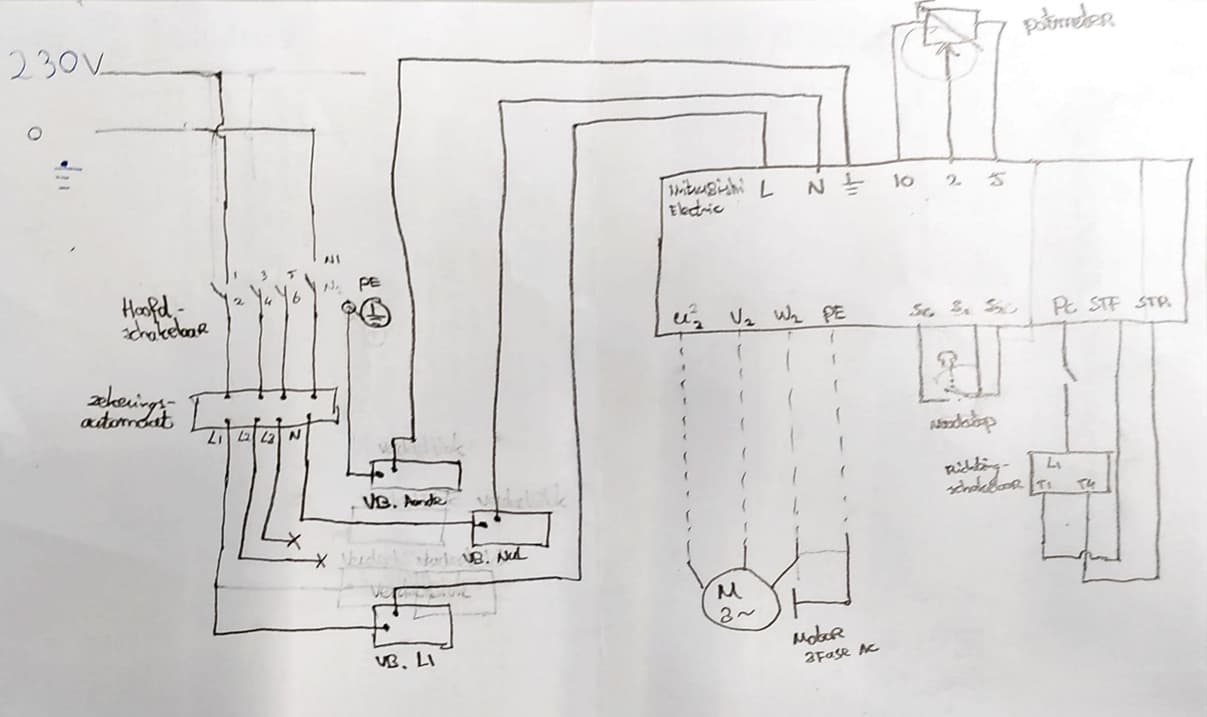 230V
0
potmeter
Mitsubishi
Electric
L N 10 2 5
1 3 5 N1
2 4 6
PE
Hoofd-
schakelaar
V2 W2 PE
PC STF STR
zekerings-
automaat
L1 L2 L3 N
Noodstop
Richting-
schakelaar
L1
T1 T4
VB. Aarde
VB. Nul
VB. L1
M
3~
Motor
3Fase AC